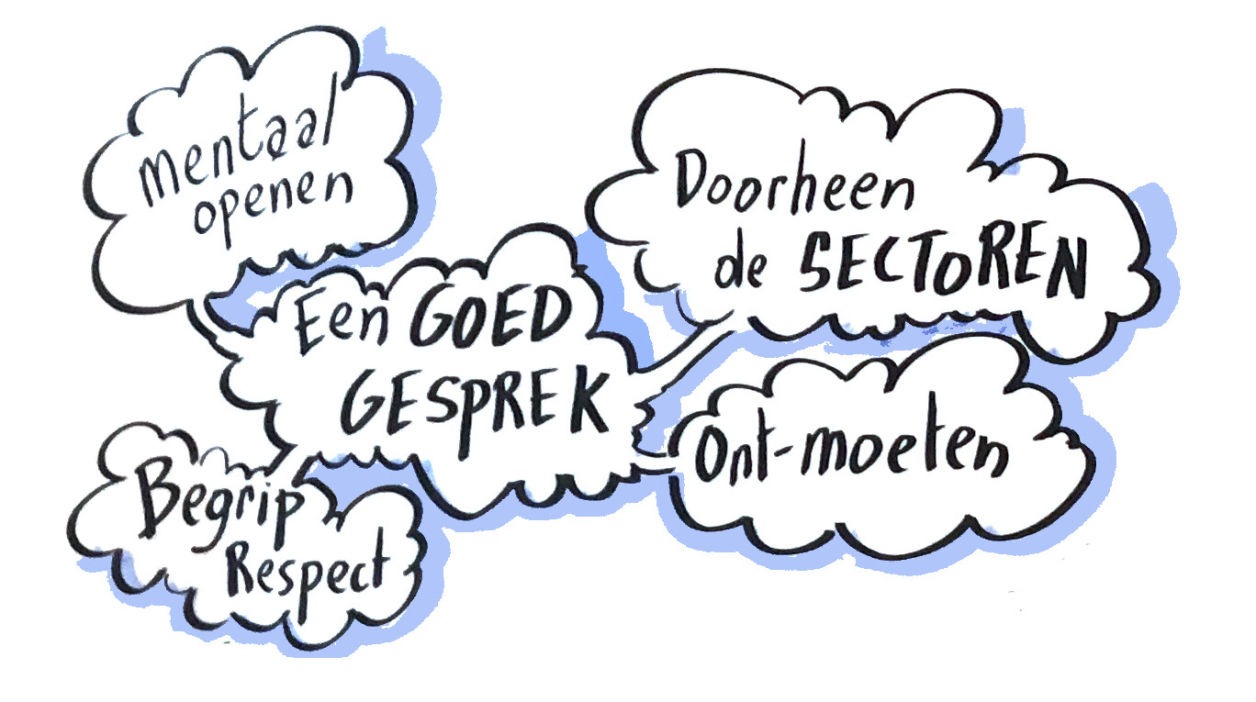 mentaal
openen
Doorheen
de SECTOREN
Een GOED
GESPREK
Ont-moeten
Begrip
Respect